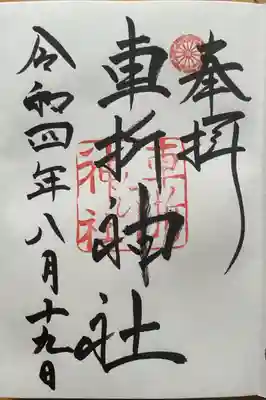 奉拝
車折神社
令和四年八月十九日
車折
神社